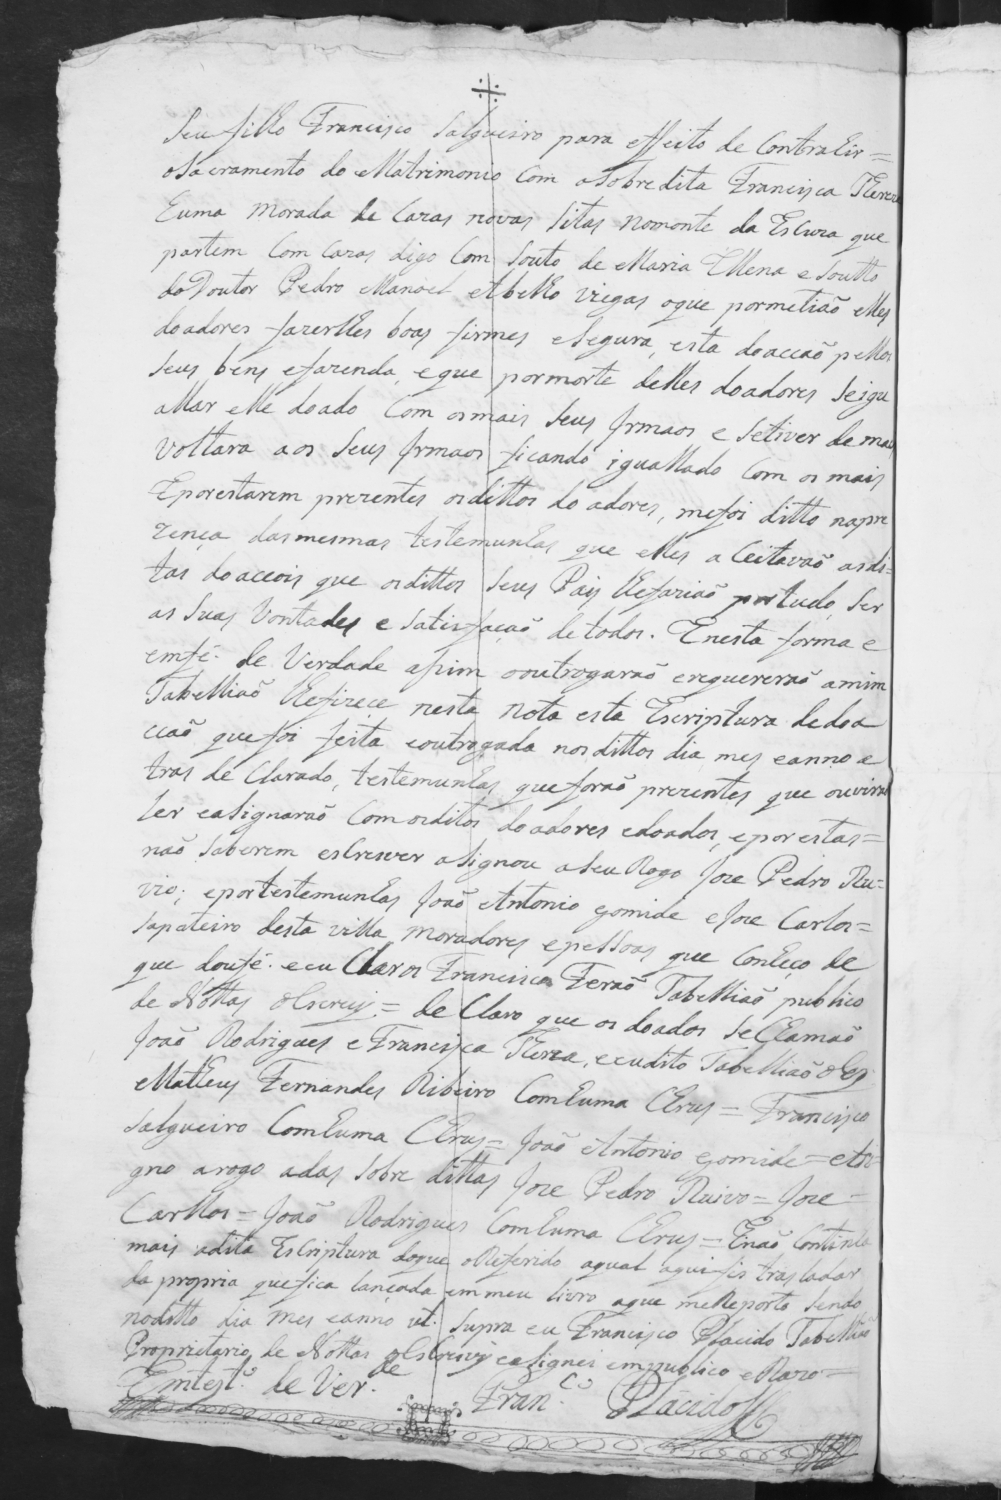 Seu filho Francisco Salgueiro para effeito de Contrahir=
oSacramento do Matrimonio Com asobredita Francisca Thereza
Euma morada de Cazas novas Sitas nomonte da Escura que
partem Com Cazas digo Com Souto de Maria Illena e Soutto
doDoutor Pedro Manoel Abelho Viegas oque pormetião elles
doadores fazerlhes boas firmes eSegura, esta doaccão pellos
Seus bens efazenda, eque pormorte delles doadores Seigu
allar elle doado Com osmais Seus Irmaos e Setiver de mais
Voltara aos Seus Irmaos ficando iguallado Com os mais
Eporestarem prezentes osdittos doadores, mefoi ditto napre
zença dasmesmas testemunhas que elles aCeitavão asdi=
tas doaccois que osdittos Seus Pais lhefazião portudo Ser
as Suas Vontades e Satisfação detodos. Enesta forma e
emfé. de Verdade asim ooutrogarão erequererão amim
Tabellião lhefizece nesta Nota esta Escriptura dedoa
ccão quefoi feita eoutrogada nosdittos dia mes eanno a
tras deClarado, testemunhas queforão prezentes que ouvirão
ler easignarão Comosditos doadores edoados, eporestas=
não Saberem escrever asignou aSeuRogo Joze Pedro Rui=
vio; eportestemunhas João Antonio gomide eJoze Carlos=
Sapateiro desta villa moradores epessoas que Conheço de
que doufé. eeu Claros Francisco Ferão Tabellião publico
de Nottas oEscrevy= deClaro que os doados SeChamão
João Rodrigues e Francisca Thereza, eeudito Tabellião oEs
Matheus Fernandes Ribeiro Comhuma Crus= Francisco
Salgueiro Comhuma Crus= João Antonio gomide= Asi=
gno arogo adas Sobre dittas Joze Pedro Ruivo= Joze=
Carllos= João Rodrigues Comhuma Crus= Enão Continha
mais adita Escriptura doque oReferido aqual aquifis trasladar
da propria quefica lançada emmeu Livro aque meReporto Sendo
noditto dia mes eanno ut. Supra eu Francisco Placido Tabellião
Proprietario de Nottas oEscrevy easignei empublico eRazo=
Emtestº. de Verde. Franco. Placido